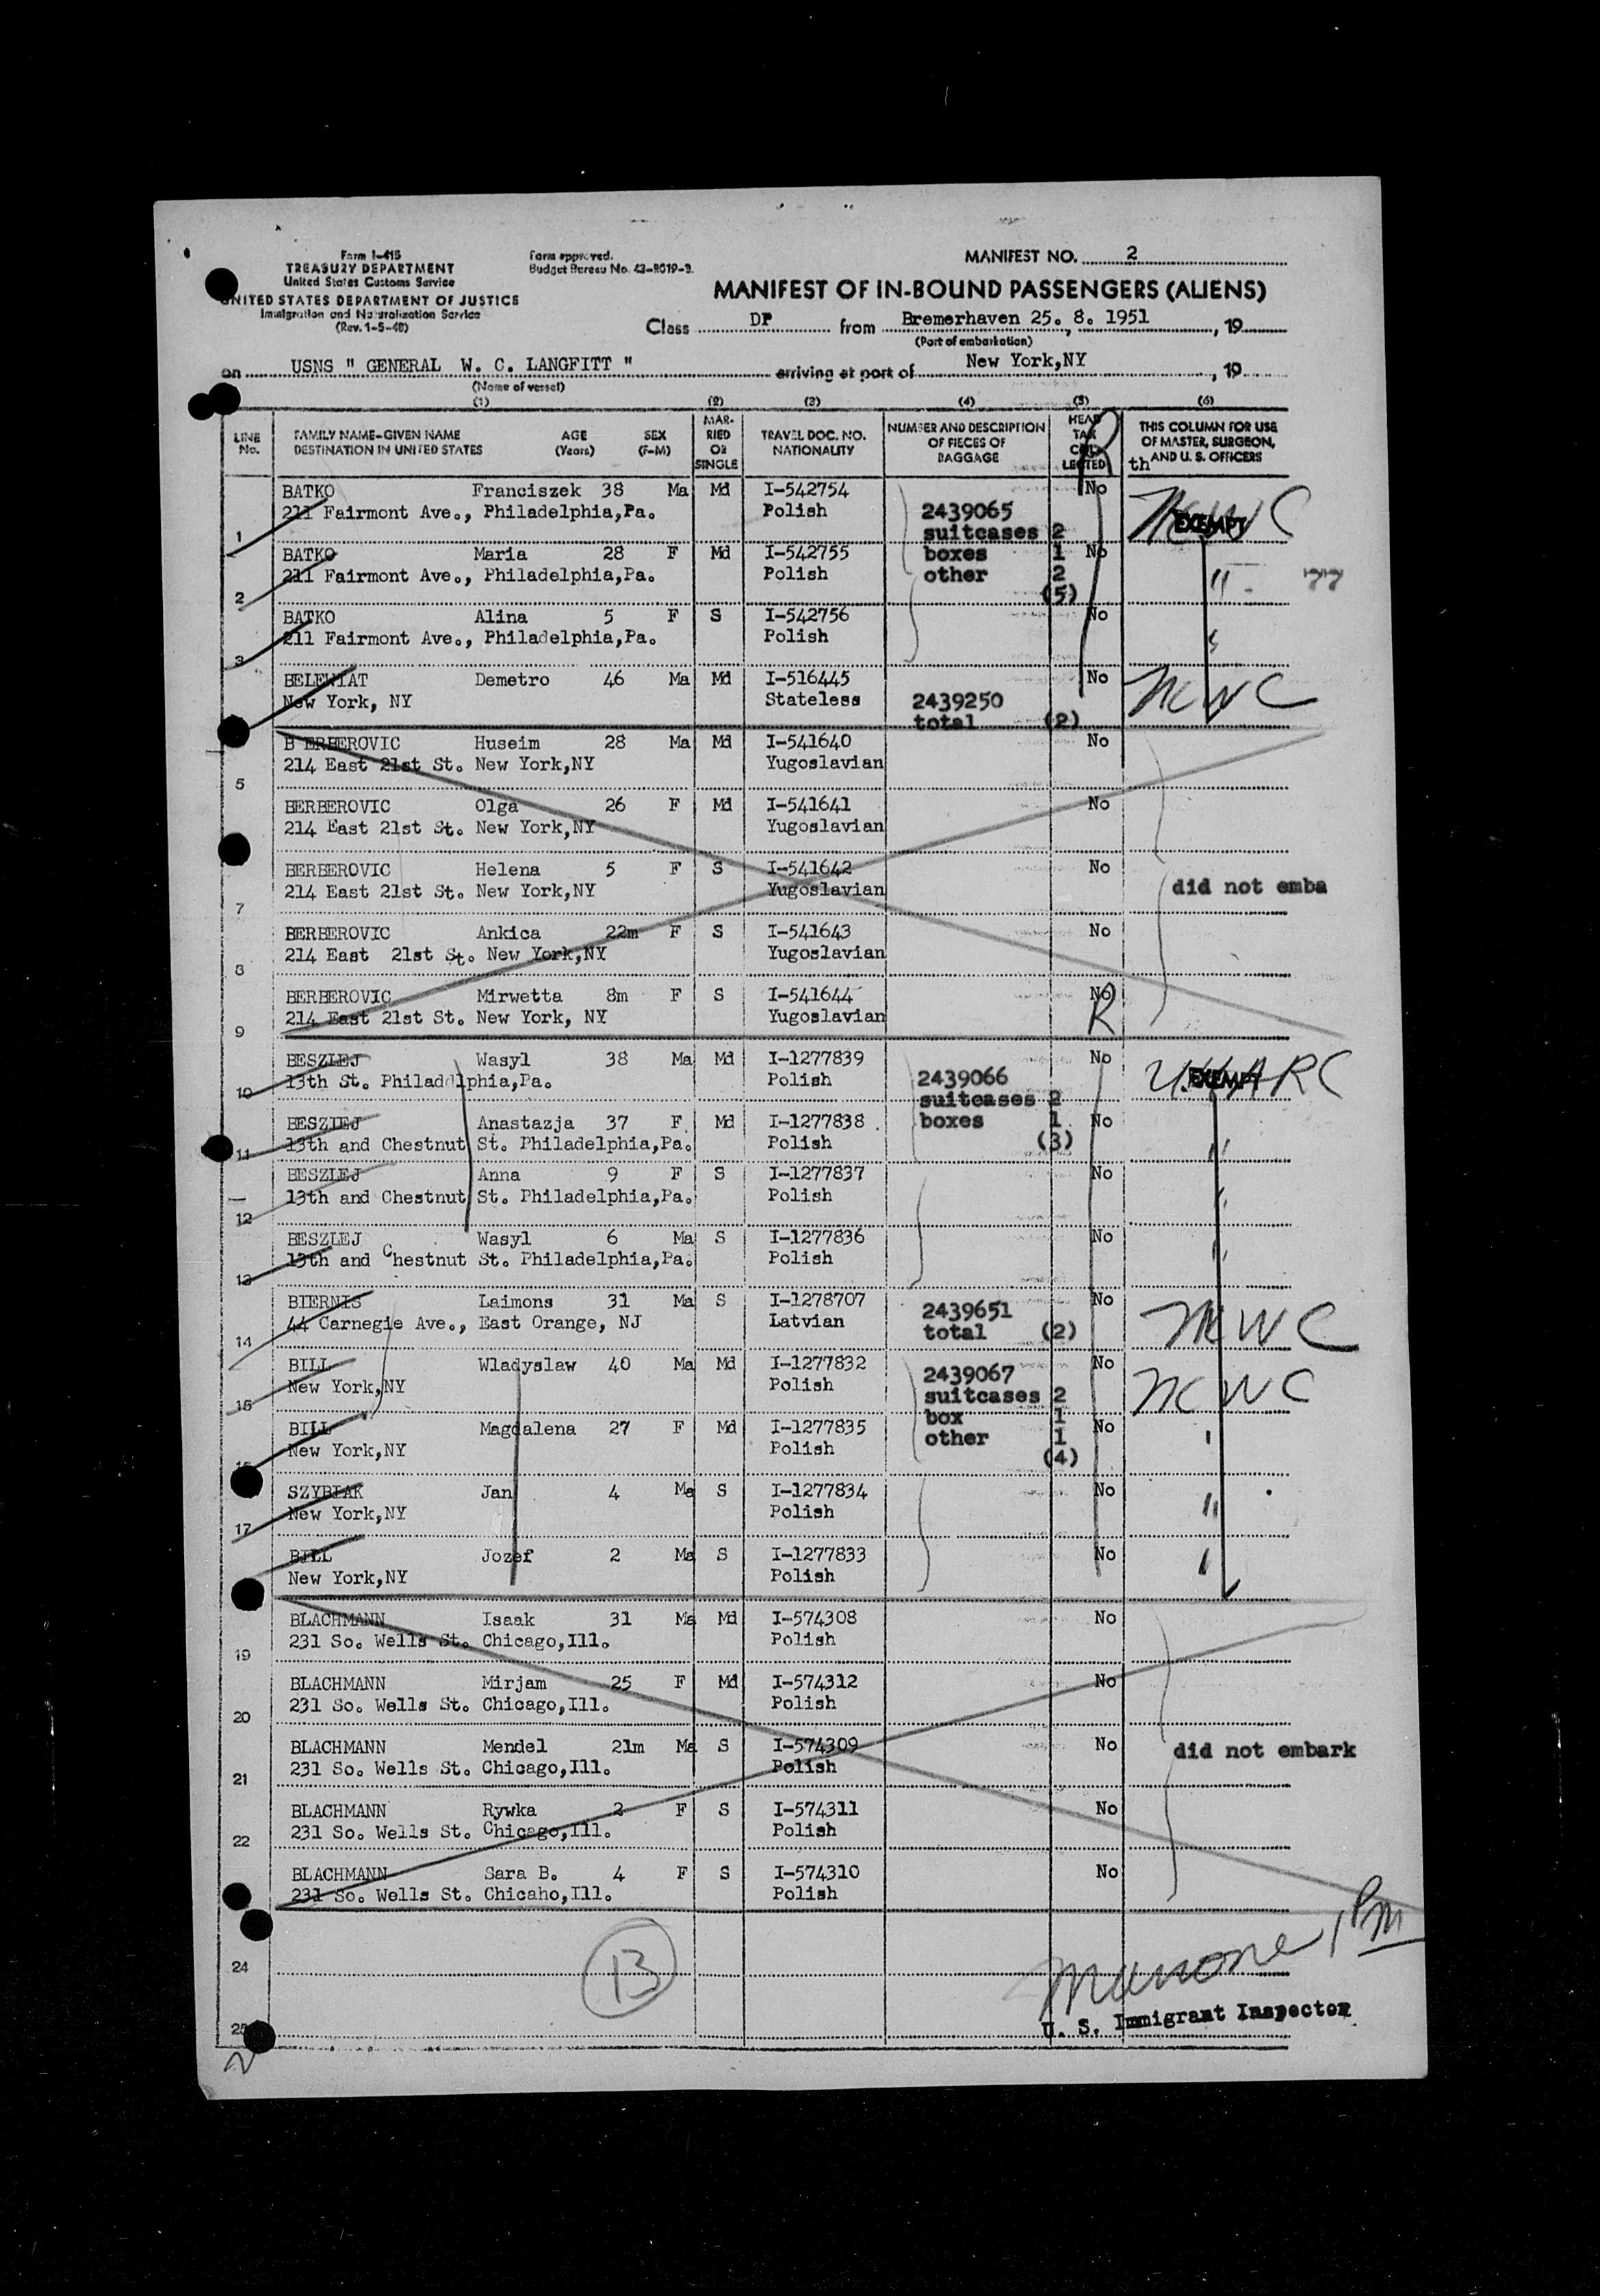 Form I-415
TREASURY DEPARTMENT
United States Customs Service
UNITED STATES DEPARTMENT OF JUSTICE
Immigration and Naturalization Service
(Rev. 1-5-48)
Form approved.
Budget Bureau No. 43-R019-3.
MANIFEST NO. 2
MANIFEST OF IN-BOUND PASSENGERS (ALIENS)
Class DP from Bremerhaven 25. 8. 1951, 19
(Port of embarkation)
on USNS " GENERAL W. C. LANGFITT " arriving at port of New York,NY, 19
(Name of vessel)
(1) (2) (3) (4) (5) (6)
LINE No. FAMILY NAME-GIVEN NAME DESTINATION IN UNITED STATES AGE (Years) SEX (F-M) MARRIED OR SINGLE TRAVEL DOC. NO. NATIONALITY NUMBER AND DESCRIPTION OF PIECES OF BAGGAGE HEAD TAX COLLECTED THIS COLUMN FOR USE OF MASTER, SURGEON, AND U. S. OFFICERS
th
R
BATKO Franciszek 38 Ma Md I-542754 No
1 211 Fairmont Ave., Philadelphia,Pa. Polish 2439065 EXEMPT NCWC
suitcases 2
BATKO Maria 28 F Md I-542755 boxes 1 No
2 211 Fairmont Ave., Philadelphia,Pa. Polish other 2 "
(5)
BATKO Alina 5 F S I-542756 No
3 211 Fairmont Ave., Philadelphia,Pa. Polish
BELEWIAT Demetro 46 Ma Md I-516445 No NCWC
New York, NY Stateless 2439250
total (2)
B ERBEROVIC Huseim 28 Ma Md I-541640 No
5 214 East 21st St. New York,NY Yugoslavian
BERBEROVIC Olga 26 F Md I-541641 No
214 East 21st St. New York,NY Yugoslavian
BERBEROVIC Helena 5 F S I-541642 No
7 214 East 21st St. New York,NY Yugoslavian did not emba
BERBEROVIC Ankica 22m F S I-541643 No
8 214 East 21st St. New York,NY Yugoslavian
BERBEROVIC Mirwetta 8m F S I-541644 No
9 214 East 21st St. New York, NY Yugoslavian R
BESZLEJ Wasyl 38 Ma Md I-1277839 No
10 13th St. Philadelphia,Pa. Polish 2439066 EXEMPT
suitcases 2
BESZLEJ Anastazja 37 F Md I-1277838 boxes 1 No
11 13th and Chestnut St. Philadelphia,Pa. Polish (3) "
BESZLEJ Anna 9 F S I-1277837 No
12 13th and Chestnut St. Philadelphia,Pa. Polish "
BESZLEJ Wasyl 6 Ma S I-1277836 No
13 13th and Chestnut St. Philadelphia,Pa. Polish "
BIERNIS Laimons 31 Ma S I-1278707 No
14 44 Carnegie Ave., East Orange, NJ Latvian 2439651 NCWC
total (2)
BILL Wladyslaw 40 Ma Md I-1277832 No
15 New York,NY Polish 2439067 NCWC
suitcases 2
box 1
BILL Magdalena 27 F Md I-1277835 No
New York,NY Polish other 1 "
(4)
SZYBIAK Jan 4 Ma S I-1277834 No
17 New York,NY Polish "
BILL Jozef 2 Ma S I-1277833 No
New York,NY Polish "
BLACHMANN Isaak 31 Ma Md I-574308 No
19 231 So. Wells St. Chicago,Ill. Polish
BLACHMANN Mirjam 25 F Md I-574312 No
20 231 So. Wells St. Chicago,Ill. Polish
BLACHMANN Mendel 21m Ma S I-574309 No did not embark
21 231 So. Wells St. Chicago,Ill. Polish
BLACHMANN Rywka 2 F S I-574311 No
22 231 So. Wells St. Chicago,Ill. Polish
BLACHMANN Sara B. 4 F S I-574310 No
231 So. Wells St. Chicaho,Ill. Polish
24
13
25
U. S. Immigrant Inspector
2